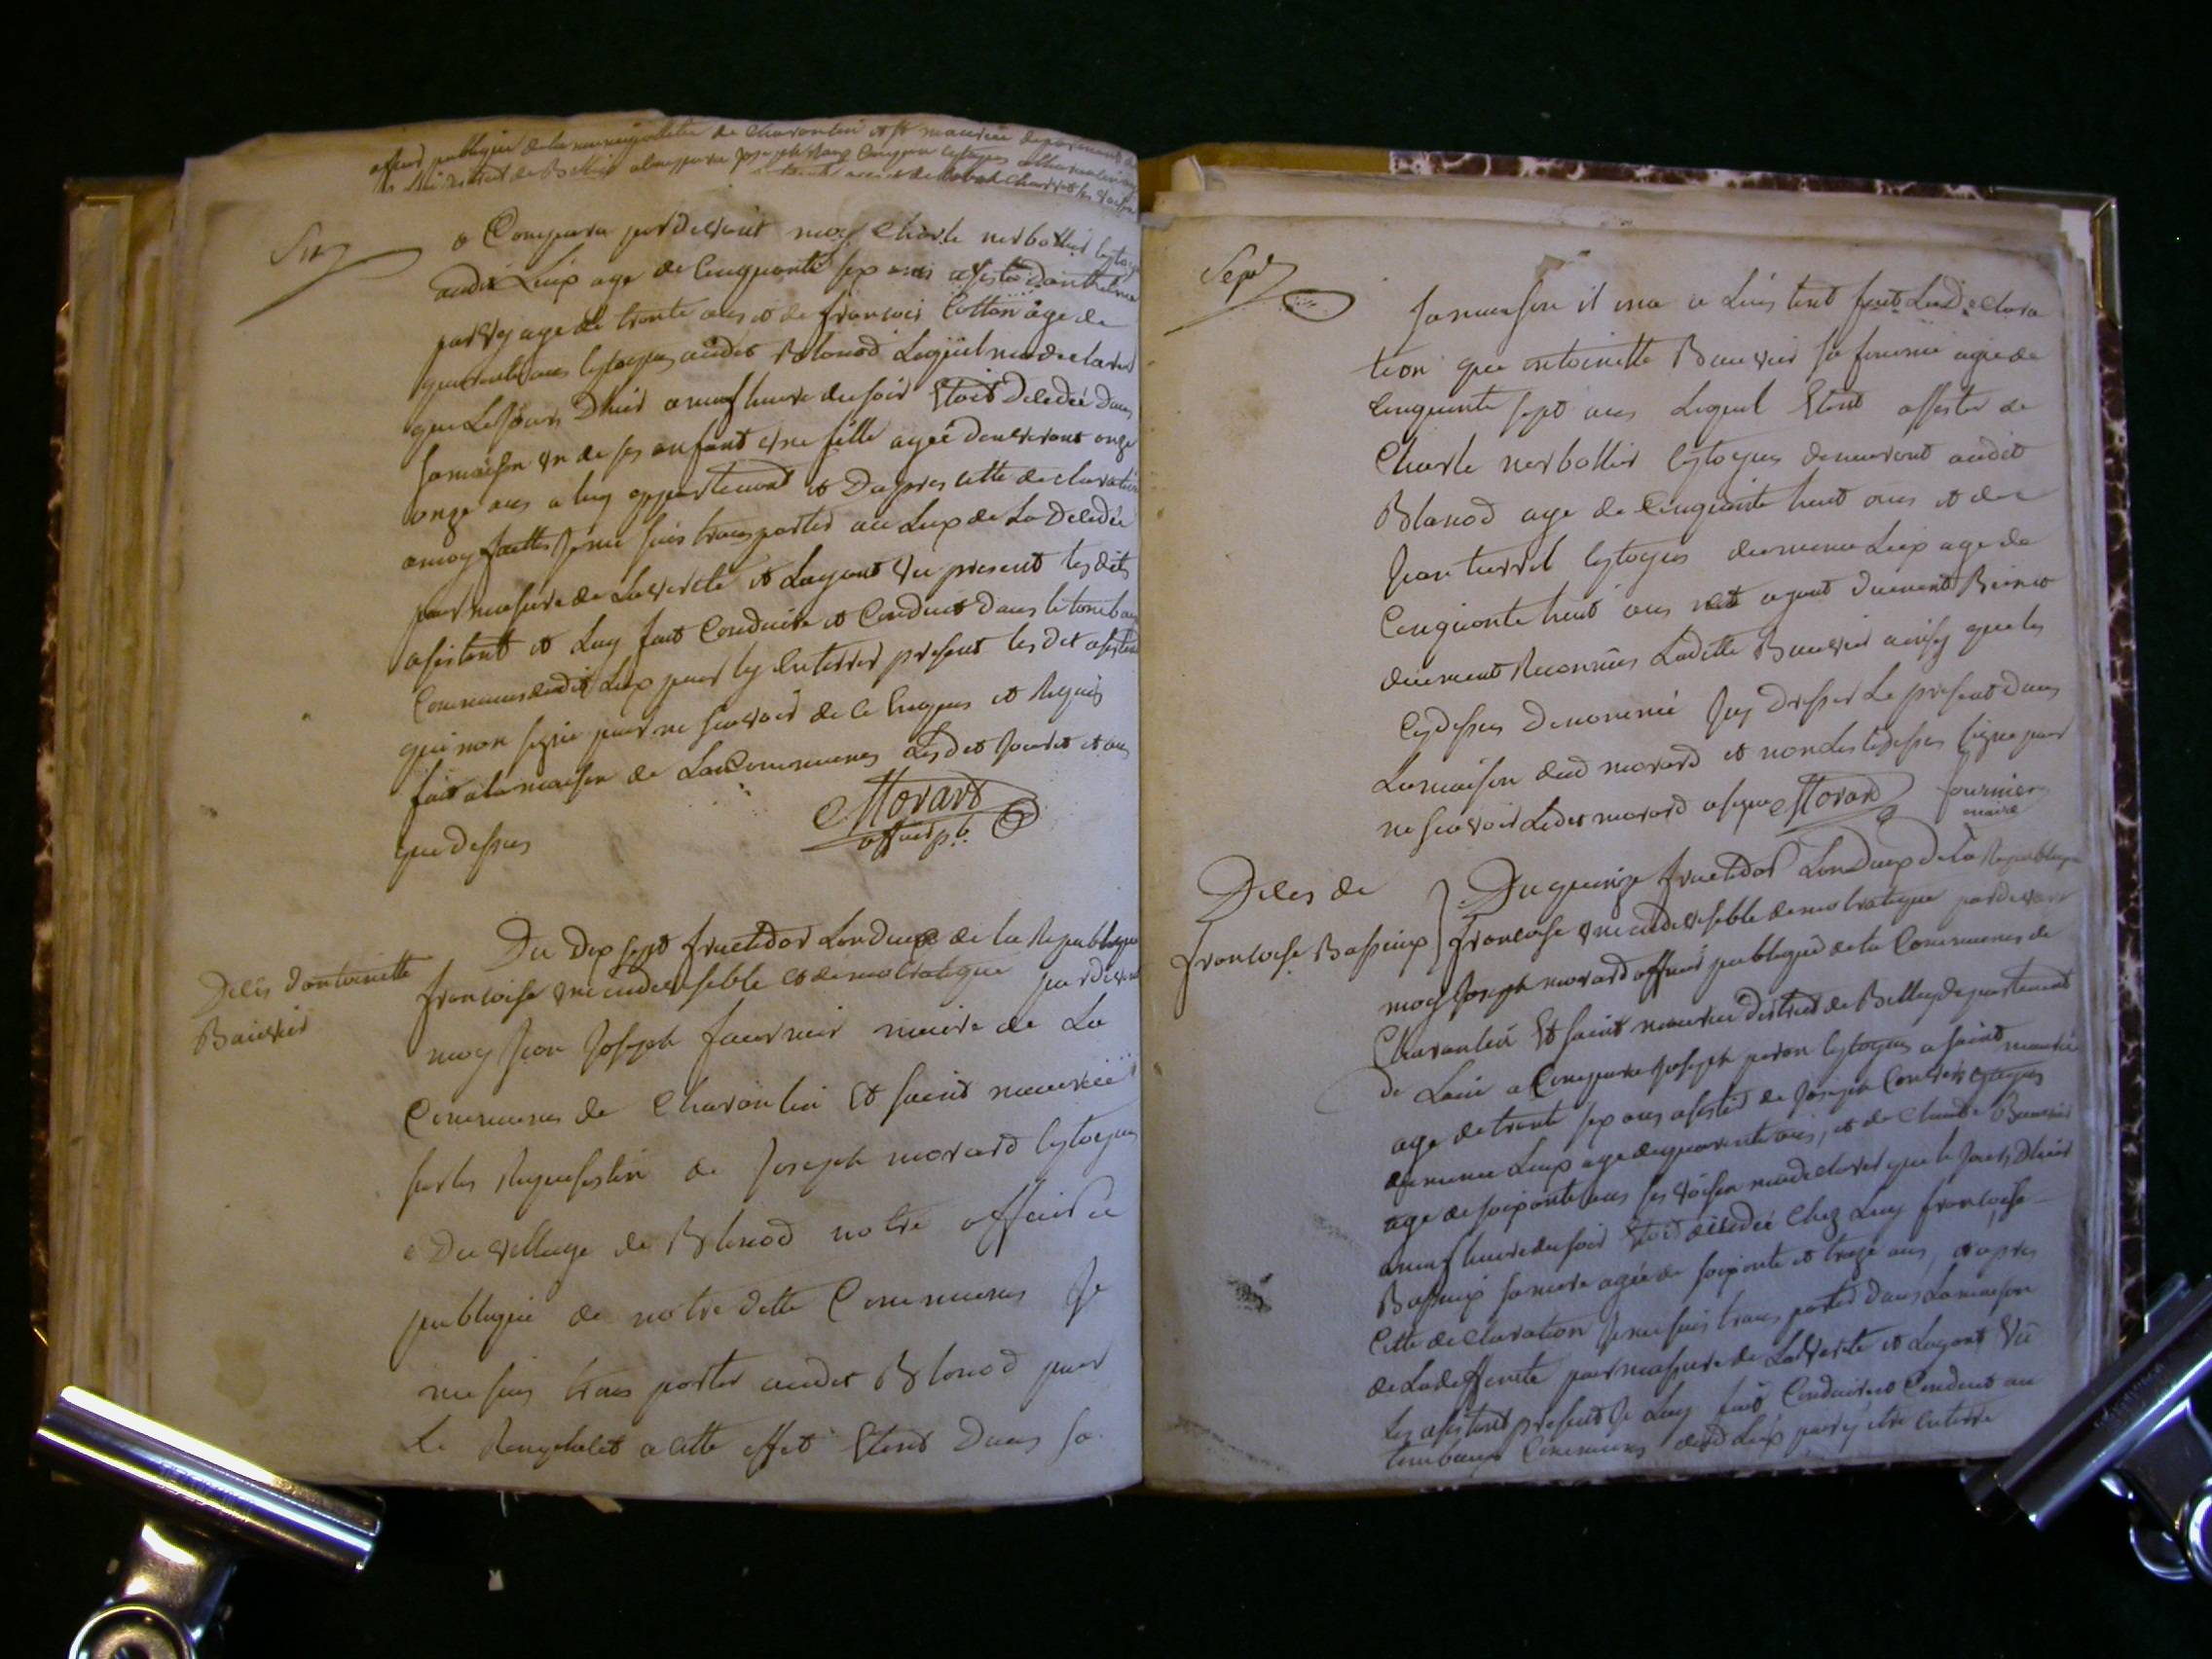 officier publique de la municipallite de Charantin et st maurice departement de
district de Belley a Comparu Joseph
Six
a Comparu pardevant moy Charle nerbollier Cytoyen
audit Lieux age de Cinquante sept ans assisté danthelme
age de trente ans et de francois Cottin age de
quarente ans Cytoyens audit Blanod Lequel ma declaré
que Le Jours Dhier a neuf heure du soir Etoit Décédée dans
sa maison un de ses enfant une fille agée denviront onze
onze ans a luy appartenant et Dapres cette declaration
a moy faitte Je me suis transporter au Lieux de La Decedée
pour massure de La verite et Layant vu present les dits
asistant et Luy fait Conduire et Conduit dans le tombeau
Commun dudit Lieux pour y Enterrer present les dit asistant
qui non signe pour ne scavoir de ce Enquis et Requis
fait a la maison de La Communes Les dit Jour et et ans
que dessus
Morard
officier p.b.
Deces Dantoinette
Bauvier
Du Dix sept fructidor Lan Deux de la Republique
francoise une indivisible et democratique pardevant
moy Jean Joseph fournier maire de La
Communes de Charantin Et saint maurice
sur les Requisition de Joseph morard Cytoyen
Du village de Blanod notre officier
publique de notre ditte Communes Je
me suis trans porter audit Blanod pour
Le a cette effet Etant Dans sa
Sept
sa maison il ma a Linstent fait La declara
tion que antoinette Bauvier sa femme agée de
Cinquante sept ans Lequel Etent assister de
Charle nerbollier Cytoyens demeurant audit
Blanod age de Cinquante huit ans et de
Jean Cytoyens du meme Lieux age de
Cinquante huit ans et ayant
duement Reconnus Laditte Bauvier ainsy que les
Cy dessus denommé Jay Dresser Le present dans
La maison dud morard et non Les Cy dessus signe pour
ne scavoir Ledit morard a signe Morard fournier
maire
Deces de
francoise Bassieux
Du quinze fructidor Lan Deux de La Republique
francoise une indivisible democratique pardevant
moy Joseph morard officier publique de la Communes de
Charantin Et saint maurice District de Belley departement
de Lain a Comparu Joseph peron Cytoyens a saint maurice
age de trente six ans assisté de Joseph Cytoyens
du meme Lieux age de quarente ans, et de Claude Bauvier
age de soixante ans ses voisin ma declaré que le Jours Dhier
a neuf heure du soir Etoit décédée Chez Luy francoise
Bassieux sa mere agée de soixante et treze ans, et apres
Cette declaration Je me suis trans porter dans La maison
de La deffunte pour massure de La verite et Layant vu
Les asistant present Je Luy fait Conduire et Conduit au
tombeaux Communes dud Lieux pour y etre Enterré